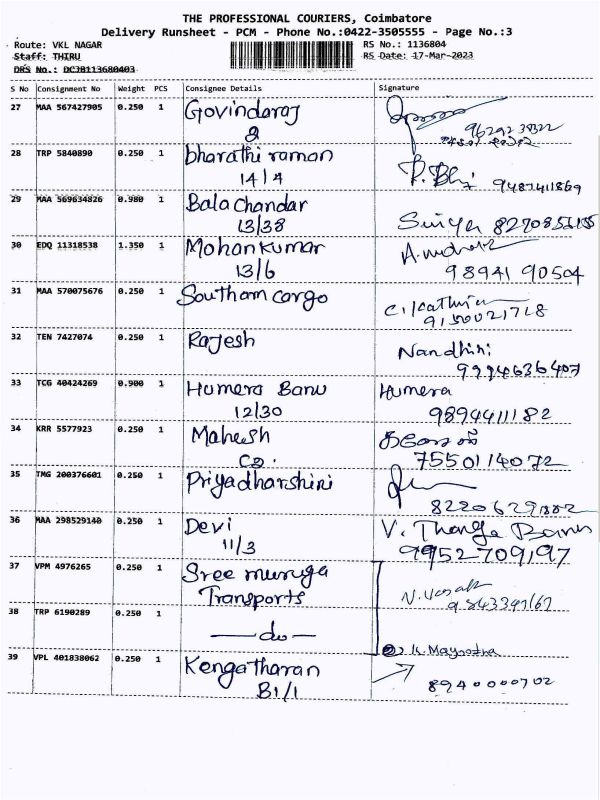 THE PROFESSIONAL COURIERS, Coimbatore
Delivery Runsheet - PCM - Phone No.:0422-3505555 - Page No.:3
Route: VKL NAGAR RS No.: 1136804
Staff: THIRU RS Date: 17-Mar-2023
DRS No.: DCJB113680403
S No Consignment No Weight PCS Consignee Details Signature
27 MAA 567427905 0.250 1 Govindaraj
28 TRP 5840890 0.250 1 bharathi raman
14/4 9487411869
29 MAA 569634826 0.980 1 Bala Chandar
13/38 Suriya
30 EDQ 11318538 1.350 1 Mohan Kumar
13/6 98941 90504
31 MAA 570075676 0.250 1 Southam cargo
32 TEN 7427074 0.250 1 Rajesh
Nandhini
9994636407
33 TCG 40424269 0.900 1 Humera Banu Humera
12/30 9894411182
34 KRR 5577923 0.250 1 Mahesh
7550114072
35 TMG 200376601 0.250 1 Priyadharshini
36 MAA 298529140 0.250 1 Devi V. Thanga
11/3 9952709197
37 VPM 4976265 0.250 1 Sree muruga
Transports
38 TRP 6190289 0.250 1
do
39 VPL 401838062 0.250 1 Kengatharan
B1/1 8940000702